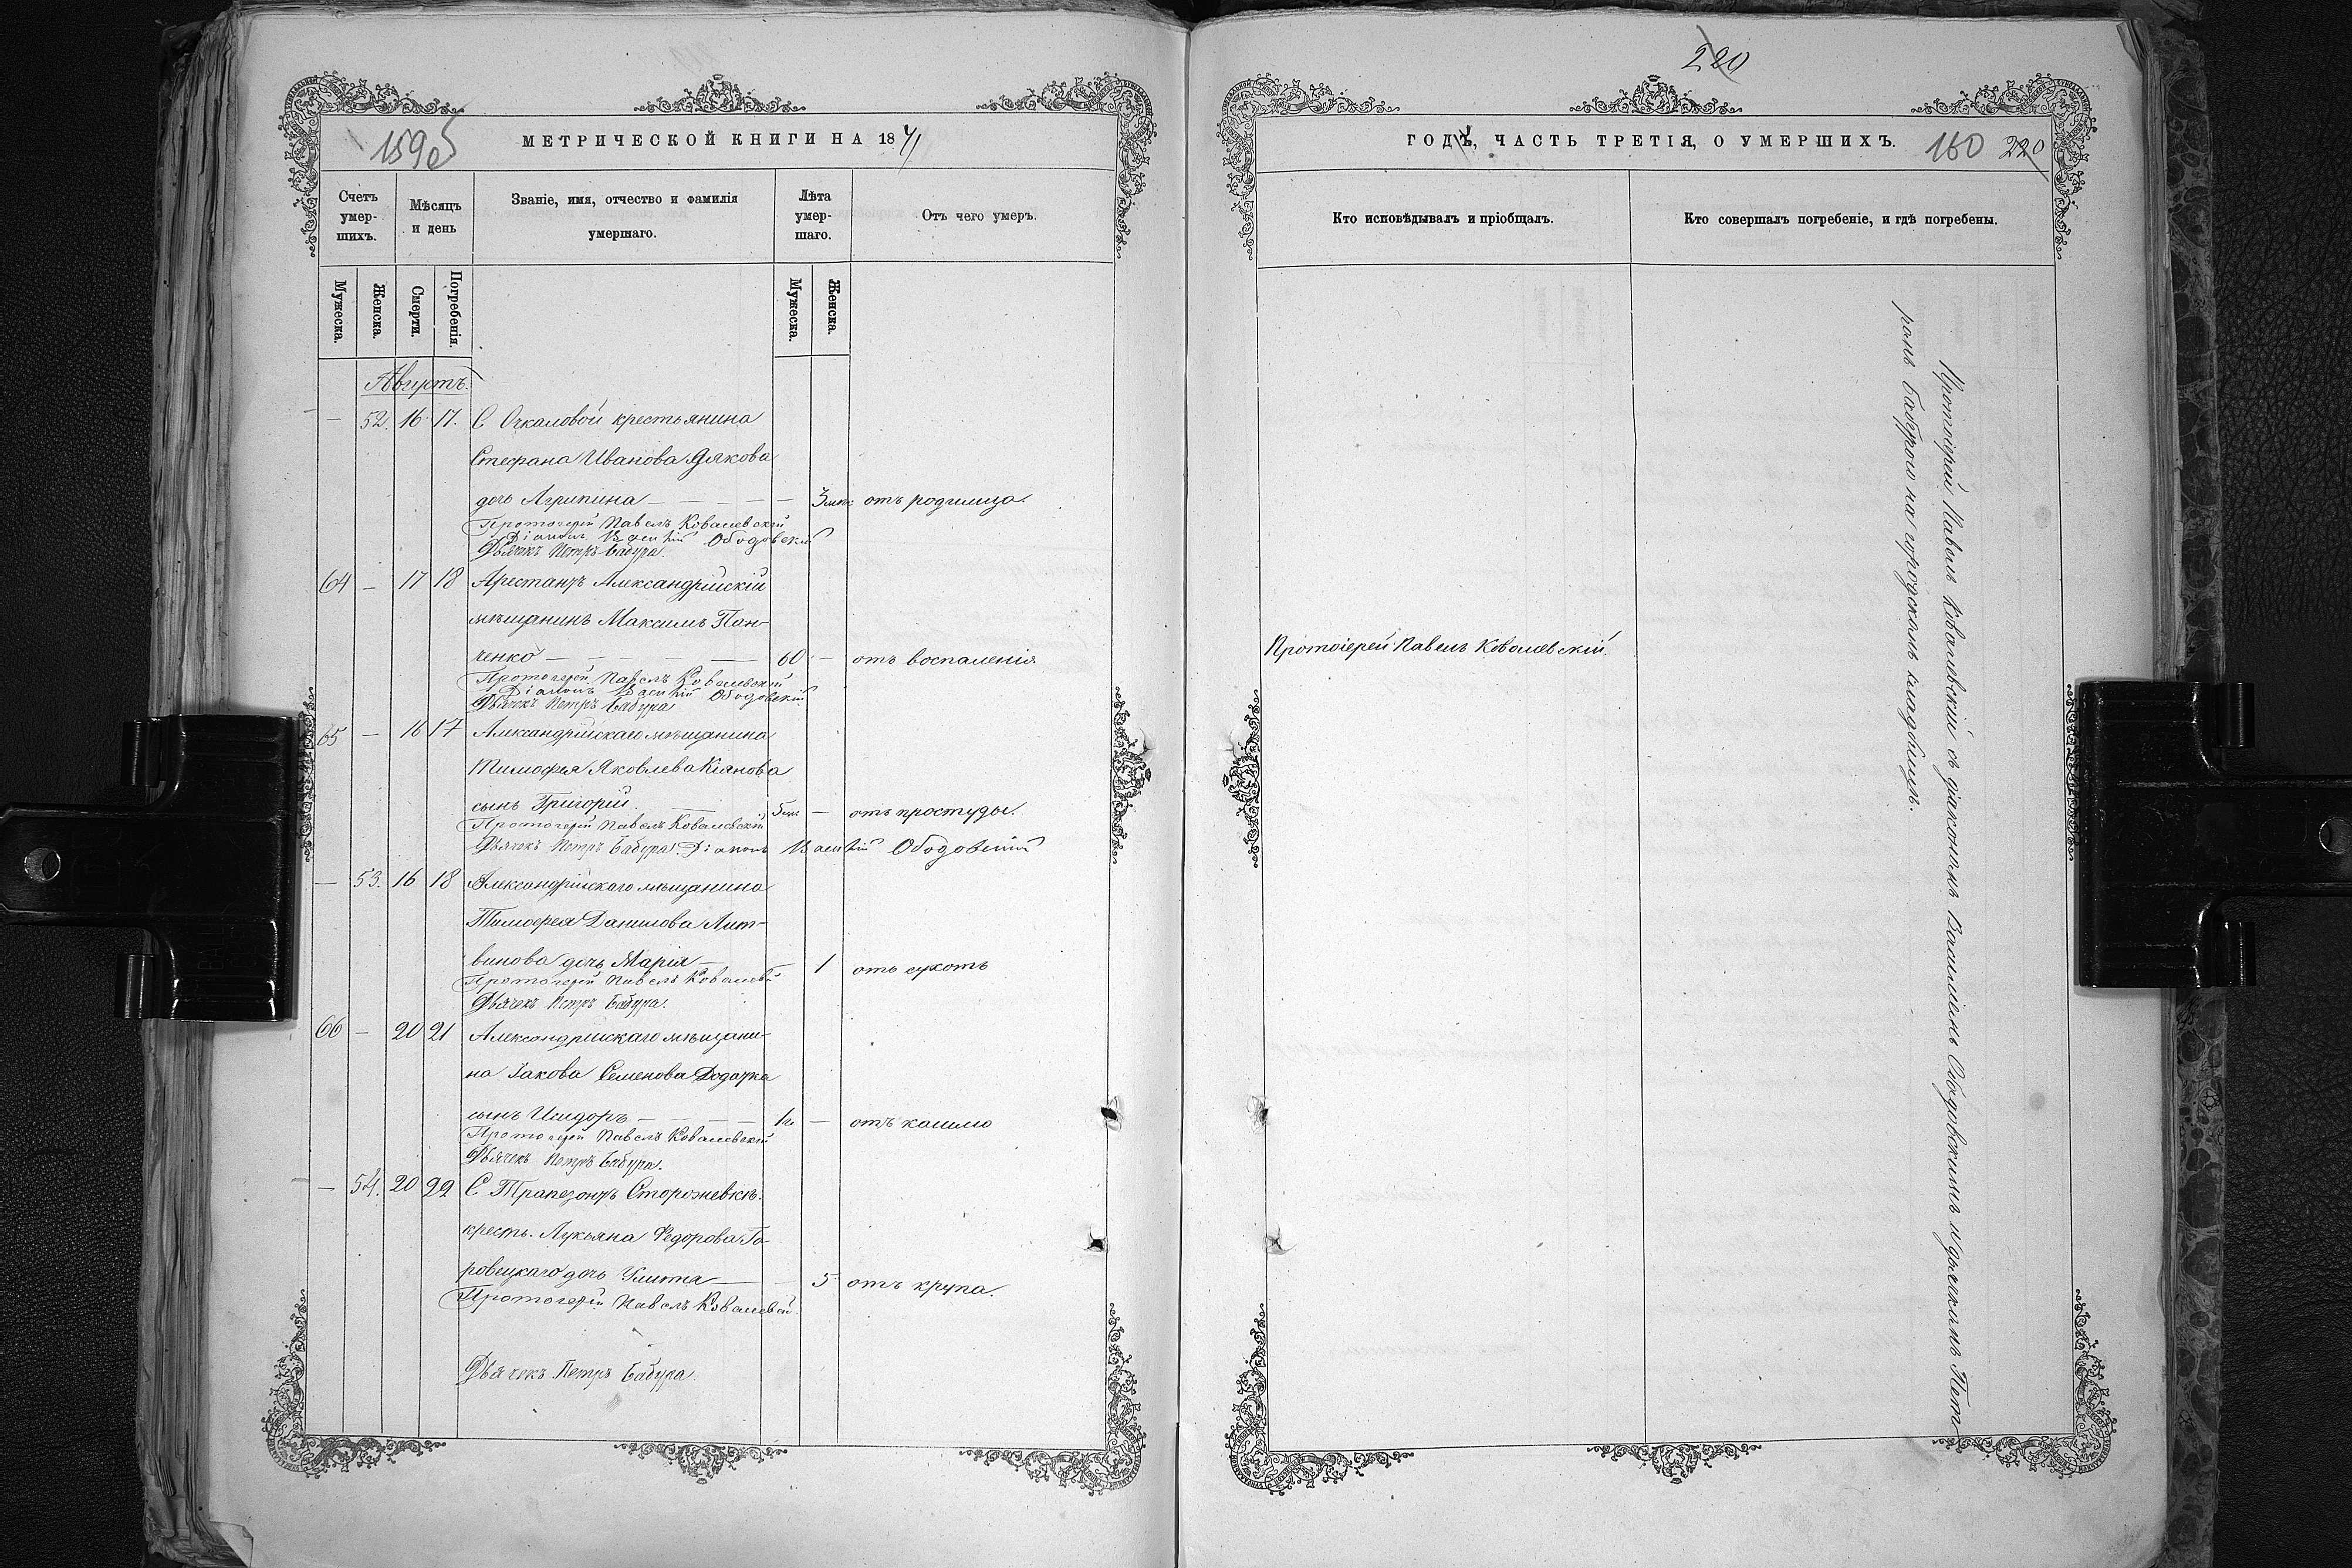 159об
МЕТРИЧЕСКОЙ КНИГИ НА 1871
Счетъ умершихъ.
Мѣсяцъ и день
Званіе, имя, отчество и фамилія умершаго.
Лѣта умершаго.
Отъ чего умеръ.
Мужеска.
Женска.
Смерти.
Погребенія.
Мужеска.
Женска.
Августъ.
— 52. 16 17. С Очкаловой крестьянина
Стефана Иванова Дякова
дочь Агрипина — — — — — 3 мѣс: отъ родимца.
Протоіерей Павелъ Ковалевскій
Діаконъ Василій Ободовскій
Дьячекъ Петръ Бабура.
64 — 17 18 Арестантъ Александрійскій
мѣщанинъ Максимъ Пан-
ченко — — — — — 60 — отъ воспаленія.
Протоіерей Павелъ Ковалевскій
Діаконъ Василій Ободовскій
Дьячекъ Петръ Бабура
65 — 16 17 Александрійскаго мѣщанина
Тимофея Яковлева Кіянова
сынъ Григорій. — 5 мѣс — отъ простуды.
Протоіерей Павелъ Ковалевскій
Дьячекъ Петръ Бабура. Діаконъ Василій Ободовскій
— 53. 16 18 Александрійскаго мѣщанина
Тимофея Данилова Лит-
винова дочь Марія — — 1 отъ сухотъ
Протоіерей Павелъ Ковалевскій
Дьячекъ Петръ Бабура.
66 — 20 21 Александрійскаго мѣщани-
на Іакова Семенова Додатка
сынъ Исидоръ — — — — 1 г. — отъ кашлю
Протоіерей Павелъ Ковалевскій
Дьячекъ Петръ Бабура.
— 54. 20 22 С Трапезонтъ Сторожевкѣ.
кресть. Лукьяна Федорова Го-
ровецкаго дочь Улита — — 5 отъ крупа.
Протоіерей Павелъ Ковалевскій.
Дьячекъ Петръ Бабура.
220
ГОДЪ, ЧАСТЬ ТРЕТІЯ, О УМЕРШИХЪ.
160 220
Кто исповѣдывалъ и пріобщалъ.
Кто совершалъ погребеніе, и гдѣ погребены.
Протоіерей Павелъ Ковалевскій.
Протоіерей Павелъ Ковалевскій съ діакономъ Василіемъ Ободовскимъ и дьячкомъ Пет-
ромъ Бабурою на городскомъ кладбищѣ.